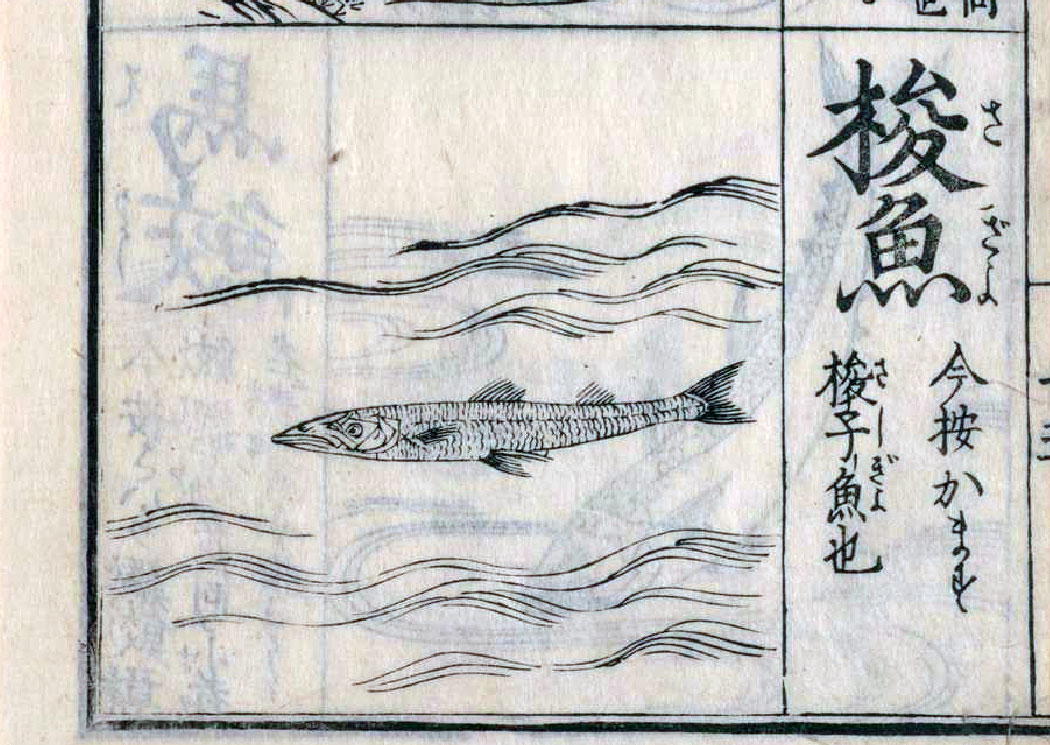 梭魚
さ ぎよ
今按かます
梭子魚也
さしぎよ